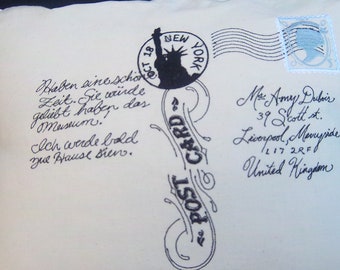 OCT 18 NEW YORK
Haben eine schön
Zeit. Sie würde
geliebt haben das
Museum!
Ich werde bald
zue Hause Sein.
POST CARD
Mrs Amey Dubin
39 Scott st.
Liverpool, Merryside
L17 2RF
United Kingdom